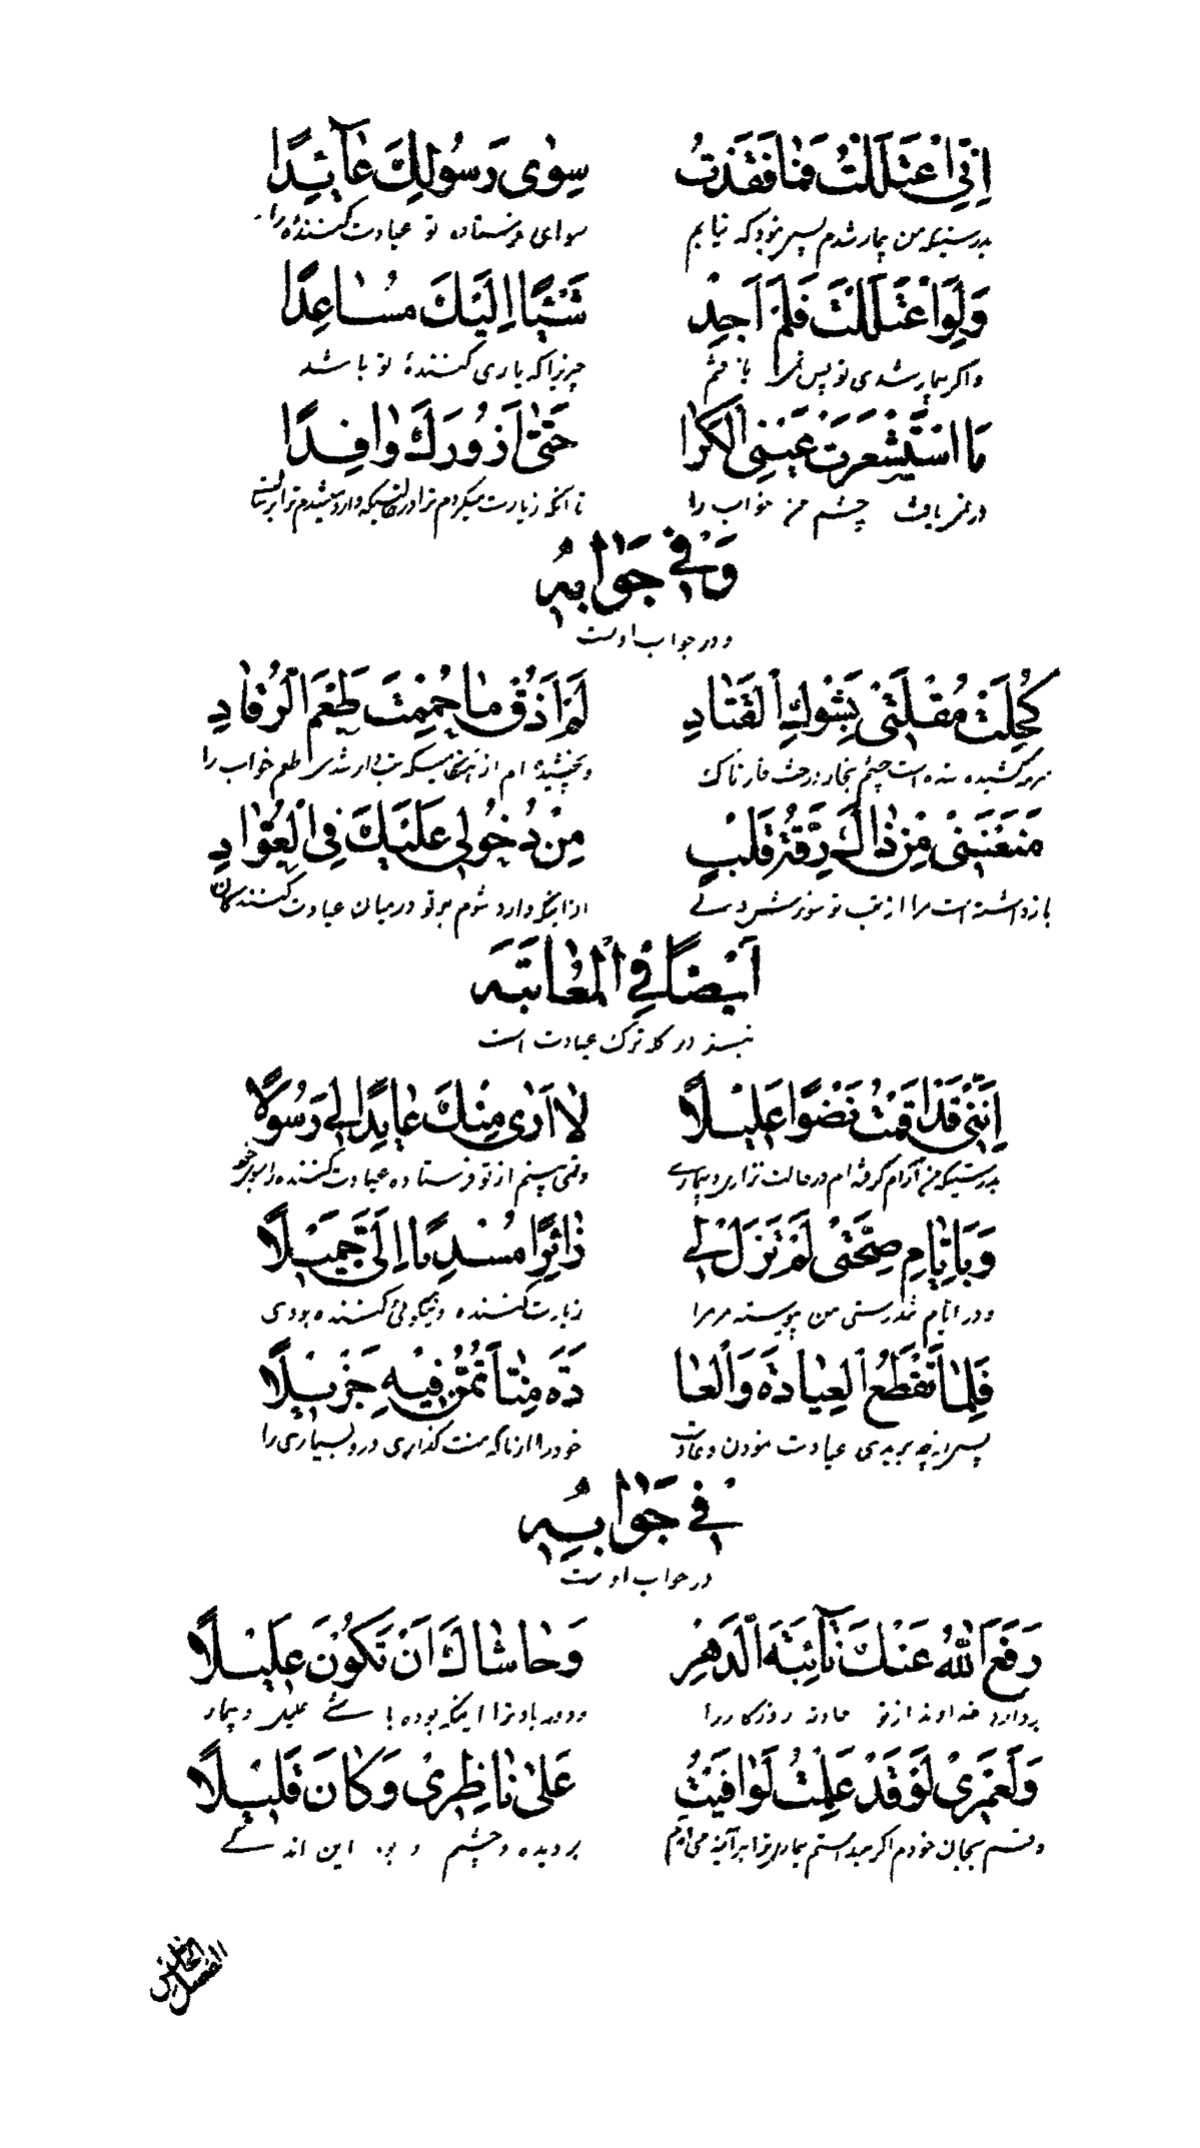 اِنّي اعْتَلَلْتُ فَمٰا فَقَدْتُ سِوٰى رَسُولِكَ عٰآئِدًا
بدرستیکه من بیمار شدم پس نبود که نیابم سوای فرستاده تو عیادت کننده را
وَلَوِ اعْتَلَلْتَ فَلَمْ اَجِدْ شَيْئًا اِلَيْكَ مُسٰاعِدًا
و اگر بیمار شدی تو پس نمی یافتم چیزیرا که یاری کنندهٔ تو باشد
مَا اسْتَشْعَرَتْ عَيْنِي الْكَرٰا حَتّٰى اَزُورَكَ وٰافِدًا
در نمی یافت چشم من خواب را تا آنکه زیارت میکردم ترا در حالتیکه وارد میشدم ترا
وَ في جَوٰابِهِ
و در جواب اوست
كُحِلَتْ مُقْلَتي بِشَوْكِ الْقَتٰادِ لَمْ اَذُقْ مٰا حُمِمْتَ طَعْمَ الرُّقٰادِ
سرمه کشیده شده است چشم بخار درخت خارناک و نچشیده ام از هنگامیکه تب دار شدی طعم خواب را
مَنَعَتْني مِنْ ذٰاكَ رِقَّةُ قَلْبٍ مِنْ دُخُولي عَلَيْكَ فِي الْعُوّٰادِ
بازداشته است مرا از تب تو سوزش دلی از اینکه وارد شوم بر تو در میان عیادت کنندگان
اَيْضًا فِي الْمُعٰاتَبَه
نیز در گله ترک عیادت است
اِنَّني قَدْ اَقَمْتُ نِضْوًا عَلِيْلًا لٰا اَرٰى مِنْكَ عٰايِدًا لي رَسُولًا
بدرستیکه من آرام گرفته ام در حالت نزاری و بیماری و نمی بینم از تو فرستاده عیادت کننده را بسوی خود
وَ بِاَيّٰامِ صِحَّتي لَمْ تَزَلْ لي زٰائِرًا مُسْدِيًا اِلَيَّ جَمِيْلًا
و در ایام تندرستی من پیوسته مر مرا زیارت کننده و نیکوئی کننده بودی
فَلِمٰا تَقْطَعُ الْعِيٰادَةَ وَالْعٰا دَةَ مِنّٰا تَمُنُّ فيهِ جَزِيْلًا
پس از چه بریدی عیادت نمودن و عادت خود را از ما که منت گذاری در او بسیاری را
في جَوٰابِهِ
در جواب اوست
رَفَعَ اللّٰهُ عَنْكَ نٰآئِبَةَ الدَّهْرِ وَ حٰاشٰاكَ اَنْ تَكُونَ عَلِيْلًا
بردارد خداوند از تو حادثه روزگار را و دور باد ترا اینکه بوده باشی علیل و بیمار
وَ لَعَمْري لَوْ قَدْ عَلِمْتُ لَوٰافَيْتُ عَلٰى نٰاظِري وَ كٰانَ قَلِيْلًا
و قسم بجان خودم اگر میدانستم بیماری ترا هر آینه می آمدم بر دیده و چشم و بود این اندکی